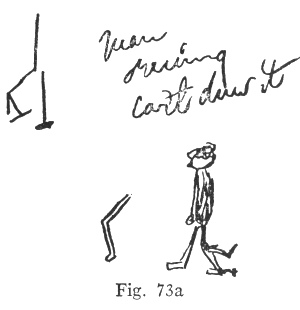 man
running
can't draw it
Fig. 73a